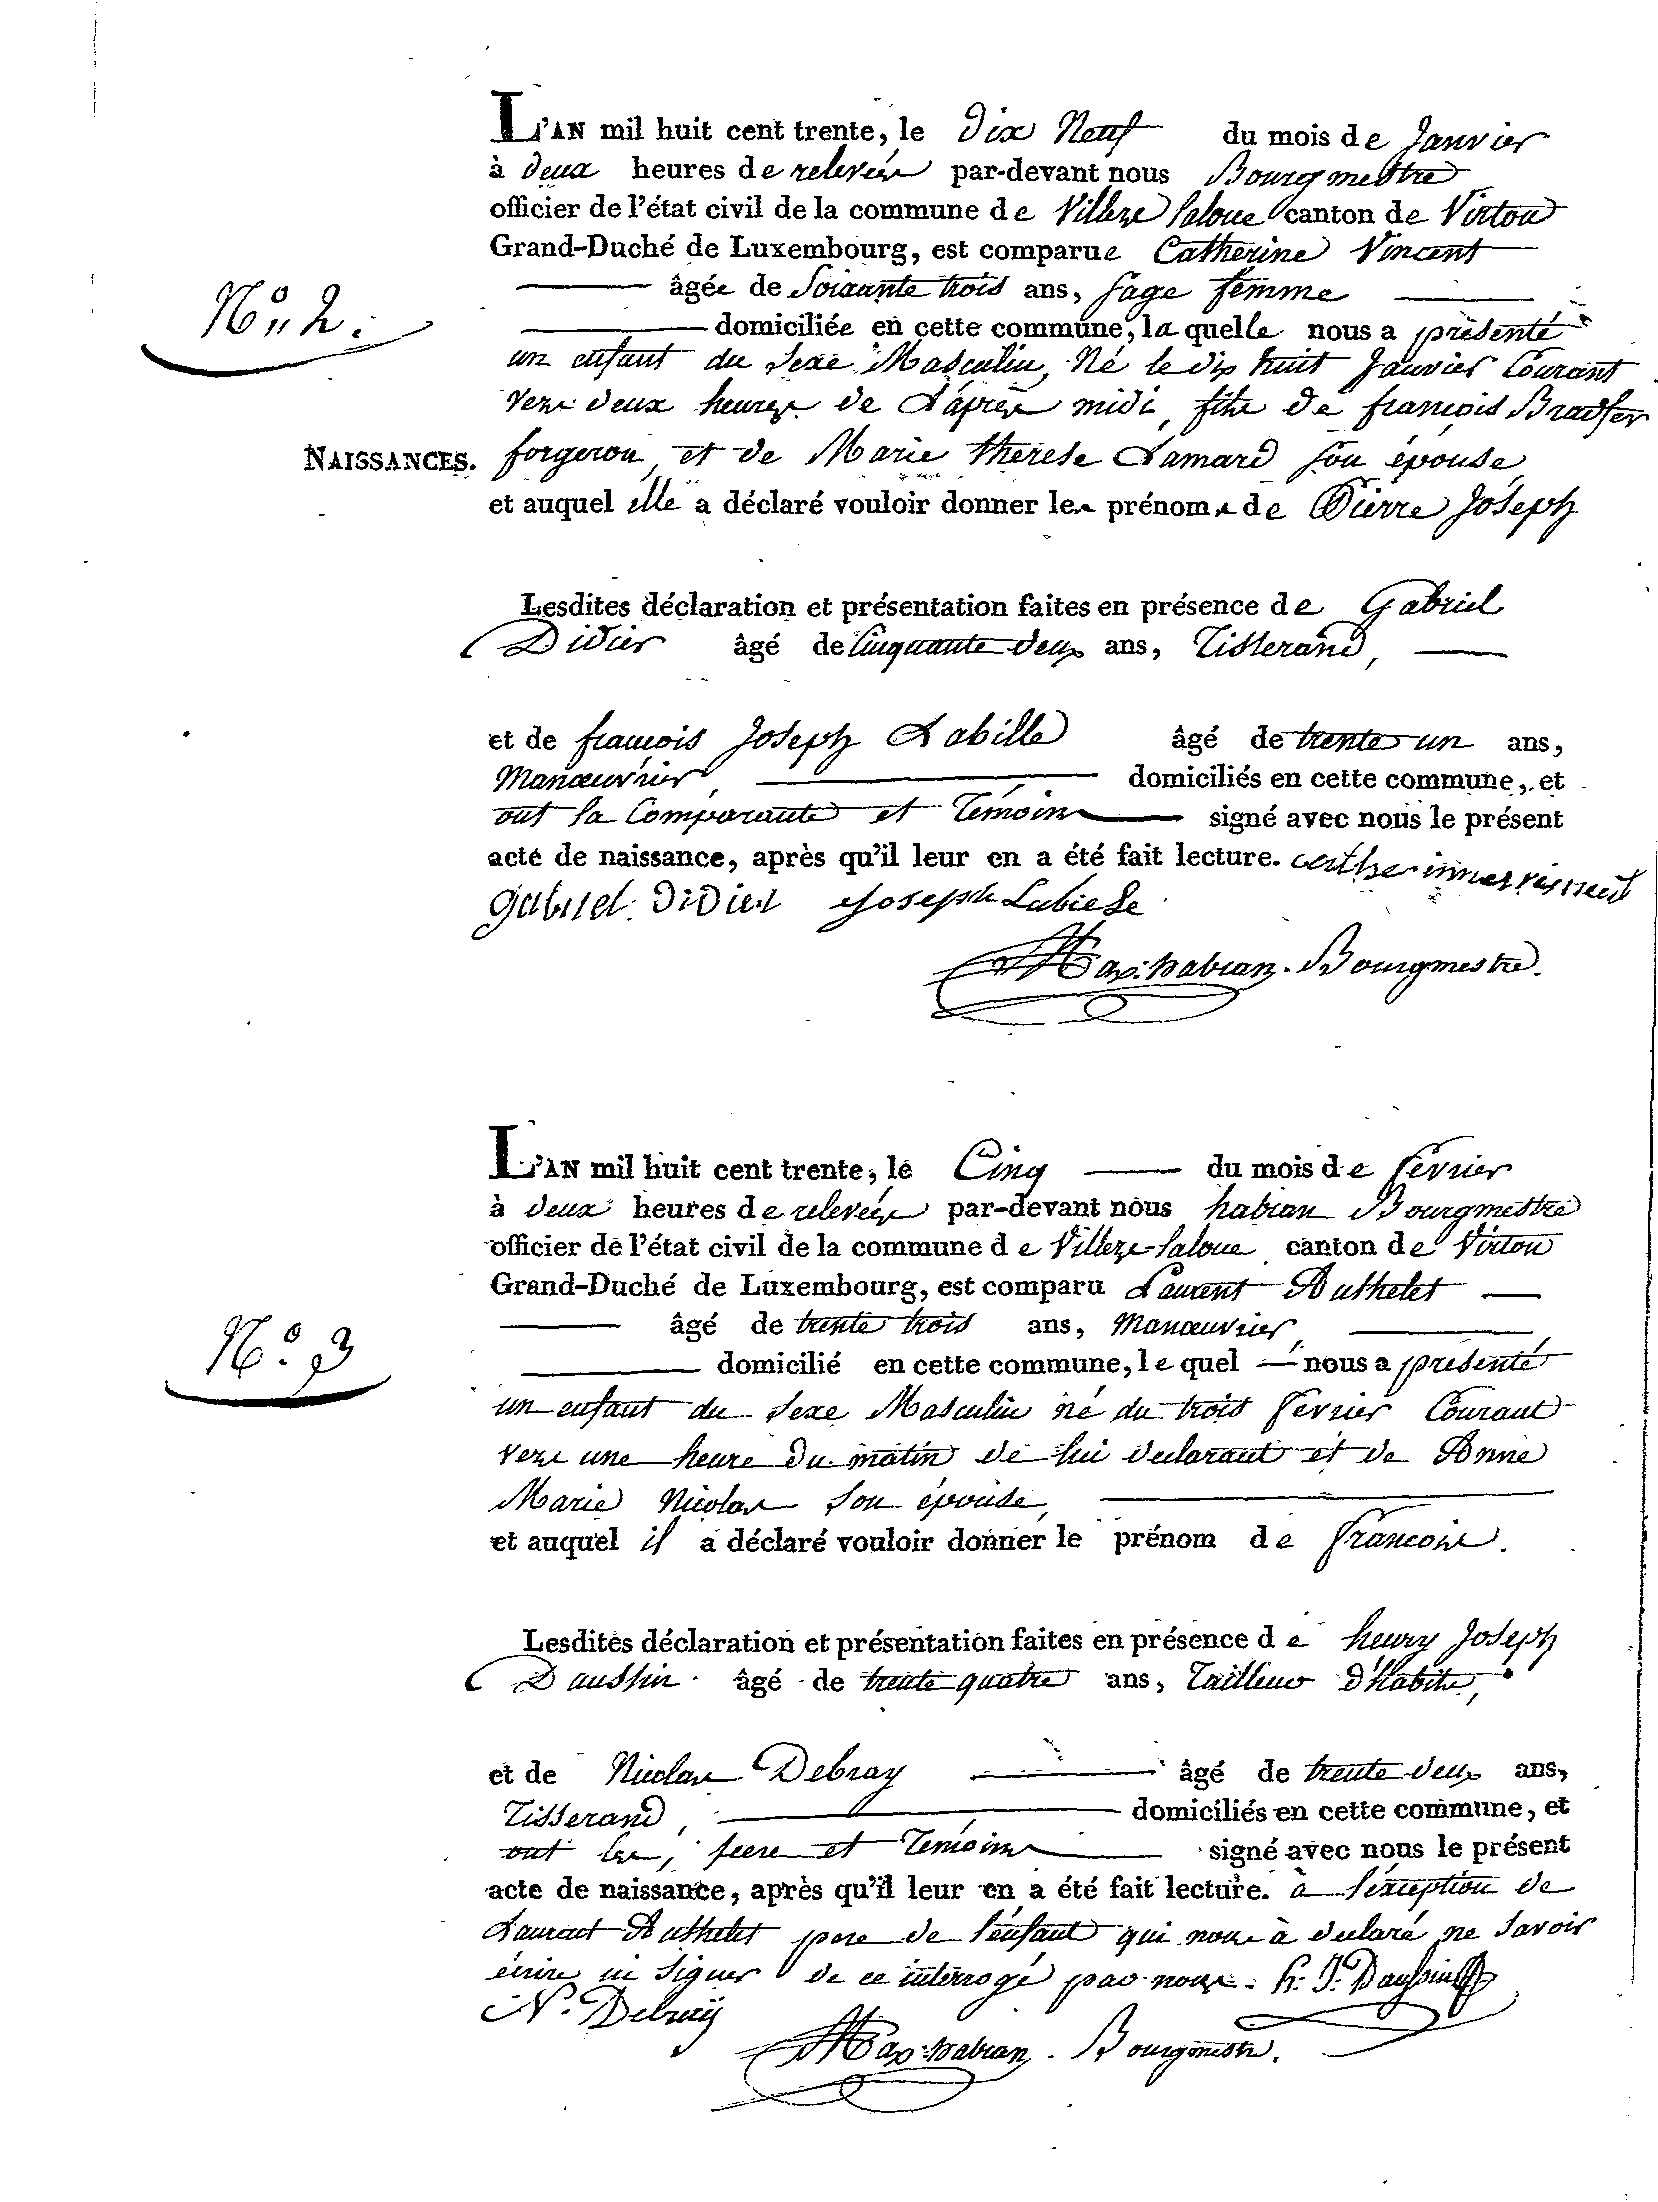 L'AN mil huit cent trente, le Dix Neuf du mois de Janvier
à deux heures de relevées par-devant nous Bourgmestre
officier de l'état civil de la commune de Villers la loue canton de Virton
Grand-Duché de Luxembourg, est comparue Catherine Vincent
âgée de Soixante trois ans, Sage femme
N° 2.
domiciliée en cette commune, la quelle nous a présenté
un enfant du Sexe Masculin, Né le dix huit Janvier Courant
vers deux heures de L'après midi, fils de françois Bradfer
NAISSANCES.
forgeron, et de Marie therese Lamard Son épouse,
et auquel elle a déclaré vouloir donner les prénoms de Pierre Joseph
Lesdites déclaration et présentation faites en présence de Gabriel
Didier âgé de Cinquante deux ans, Tisserand,
et de françois Joseph Labille âgé de trente un ans,
Manœuvrier, domiciliés en cette commune, et
ont la Comparante et Témoins signé avec nous le présent
acte de naissance, après qu'il leur en a été fait lecture.
gabriel Didier Joseph Labiele
Max: habran. Bourgmestre.
L'AN mil huit cent trente, le Cinq du mois de février
à deux heures de relevées par-devant nous habran Bourgmestre
officier de l'état civil de la commune de Villers-laloue canton de Virton
Grand-Duché de Luxembourg, est comparu Laurent Authelet
âgé de trente trois ans, Manœuvrier,
N° 3
domicilié en cette commune, le quel nous a présenté
un enfant du Sexe Masculin né du trois février Courant
vers une heure du matin de lui declarant et de Anne
Marie Nicolas Son épouse,
et auquel il a déclaré vouloir donner le prénom de francois.
Lesdites déclaration et présentation faites en présence de henry Joseph
Daussin âgé de trente quatre ans, Tailleur d'habits,
et de Nicolas Debray âgé de trente deux ans,
Tisserand, domiciliés en cette commune, et
ont les, pere et Temoins signé avec nous le présent
acte de naissance, après qu'il leur en a été fait lecture. à l'exception de
Laurent Authelet pere de l'enfant qui nous à declaré ne Savoir
écrire ni Signer de ce interrogé par nous. h. J. Daussin
N. Debray
Max: habran. Bourgmestre.